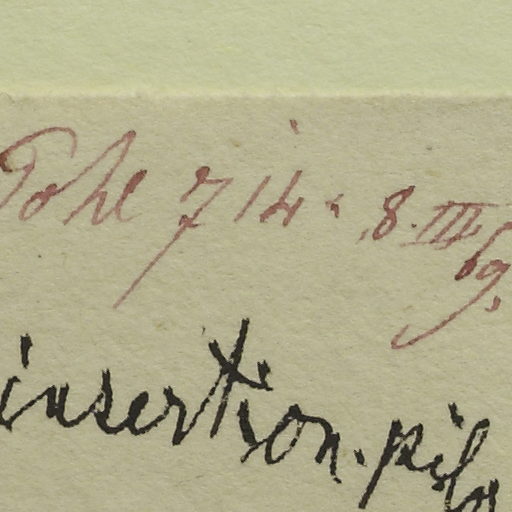 Pohl 714. 8. III 69.
insertion. pilo